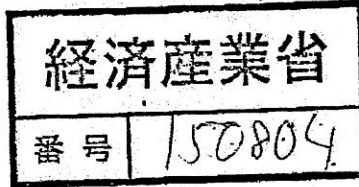 経済産業省
番号 150804